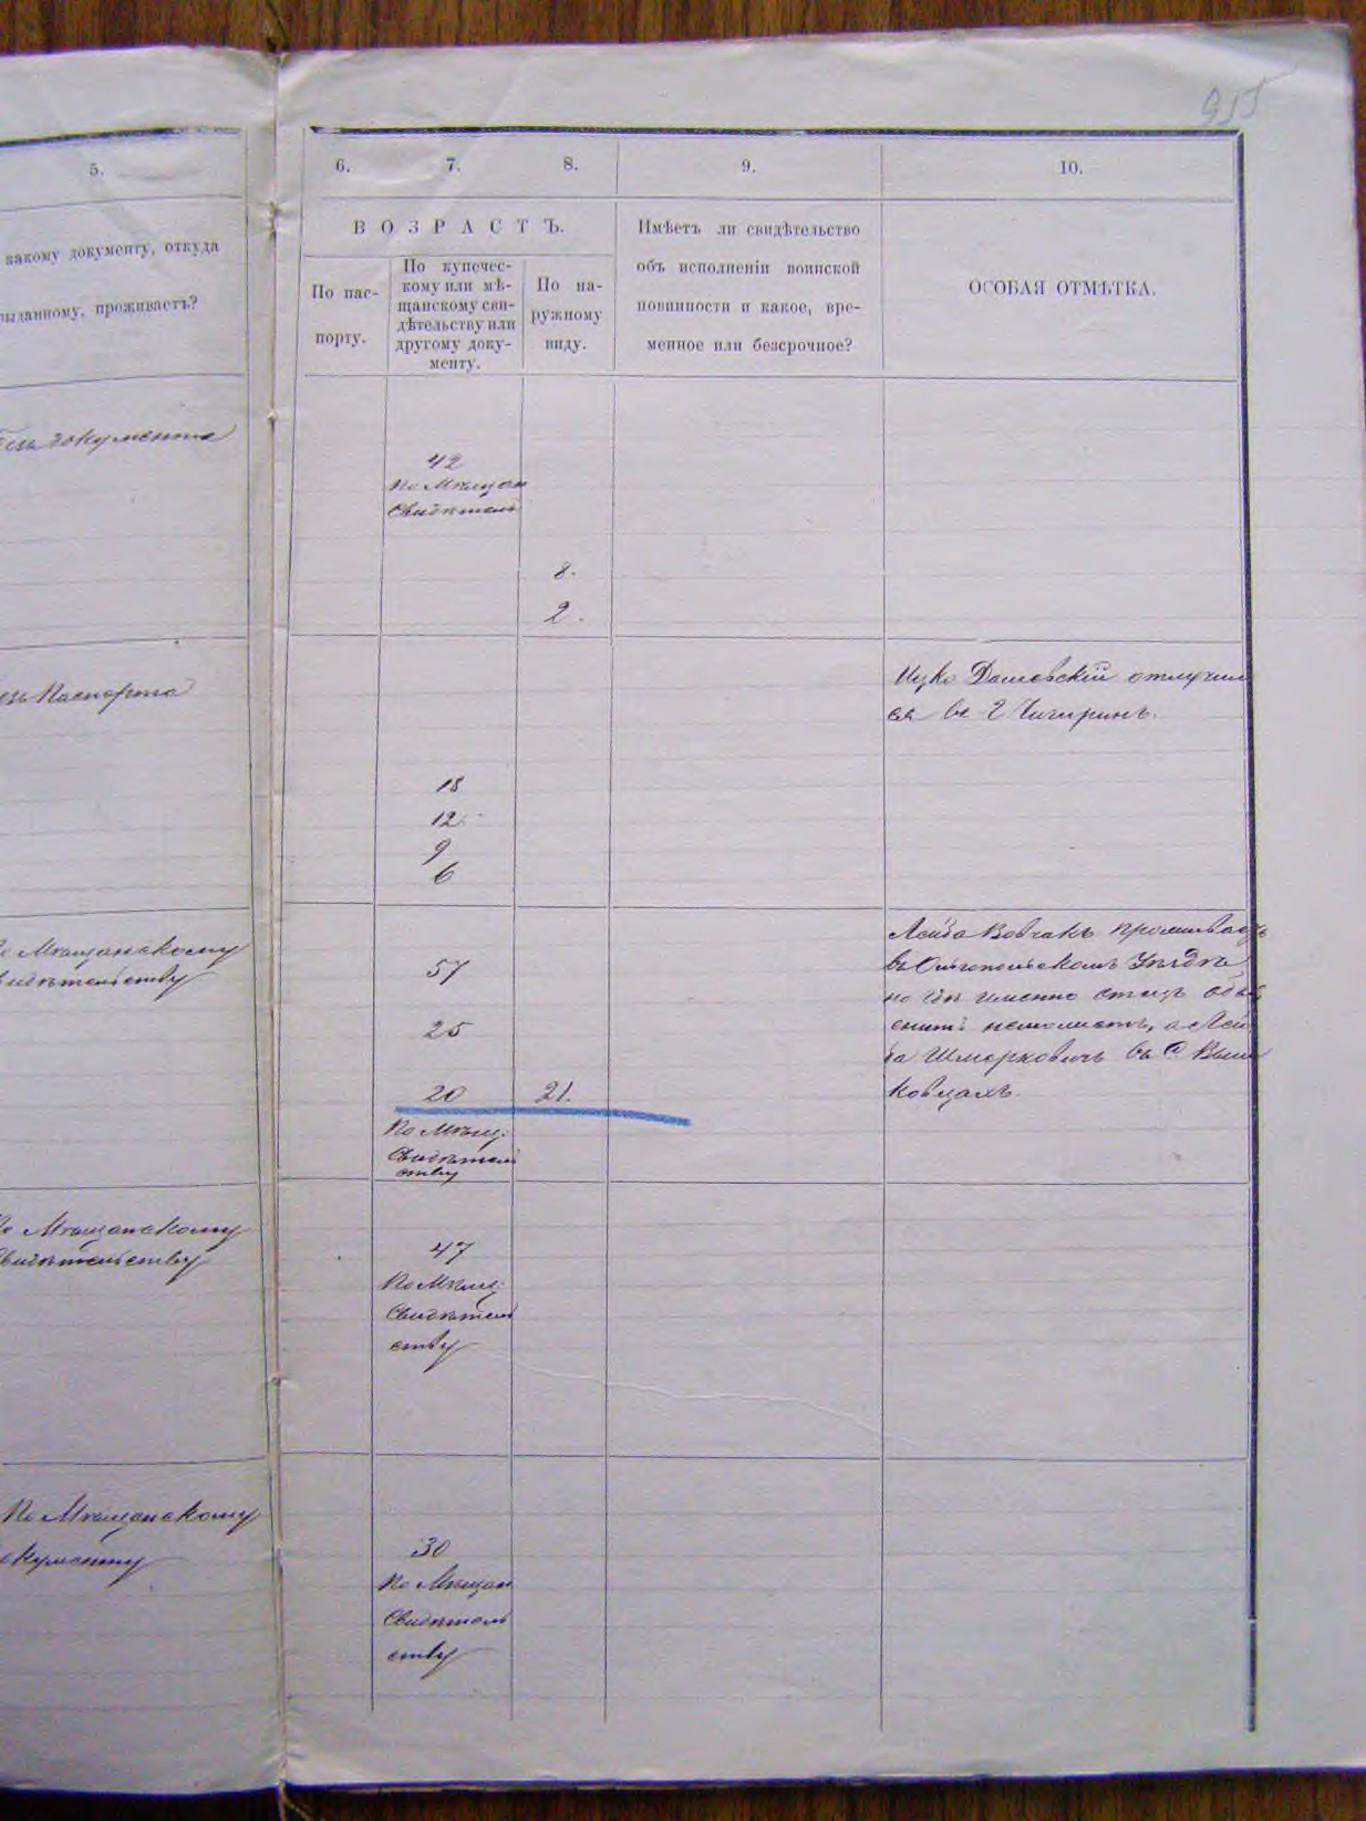 955
5.
6.
7.
8.
9.
10.
ВОЗРАСТЪ.
какому документу, откуда
выданному, проживаетъ?
По пас-
порту.
По купечес-
кому или мѣ-
щанскому сви-
дѣтельству или
другому доку-
менту.
По на-
ружному
виду.
Имѣетъ ли свидѣтельство
объ исполненіи воинской
повинности и какое, вре-
менное или безсрочное?
ОСОБАЯ ОТМѢТКА.
документа
42
По Мѣщан
Свидѣтель
8.
2.
Паспорта
Ицко Дашевскій отлучил
ся въ г Чигиринъ.
18
12
9
6
Мѣщанскому
свидѣтельству
57
25
20
21.
По Мѣщ.
Свидѣтель
ству
Лейба Вовчакъ проживаетъ
въ Ольгопольскомъ Уѣздѣ
но гдѣ именно отецъ объ
яснить не
а Лей
ба Шмерковичъ въ с
ковцахъ.
По Мѣщанскому
Свидѣтельству
47
По Мѣщ.
Свидѣтель
ству
По Мѣщанскому
документу
30
По Мѣщан
Свидѣтель
ству